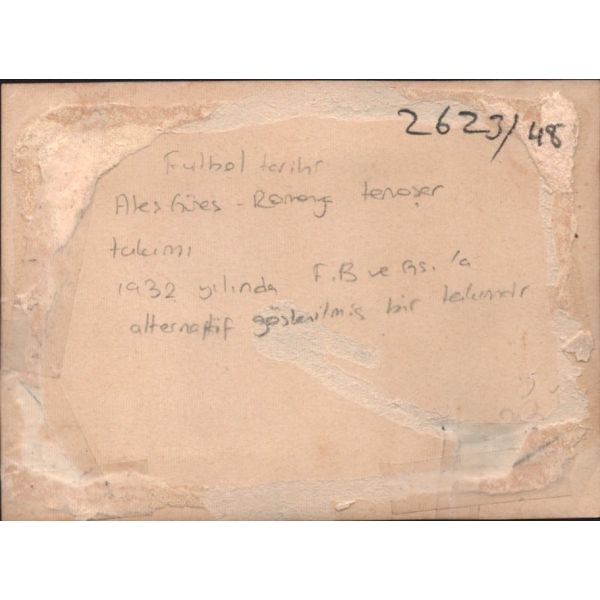 2623/48
Futbol tarihi
Ateş Güneş - Romanya
takımı
1932 yılında F.B ve GS.'a
alternatif gösterilmiş bir takımdır